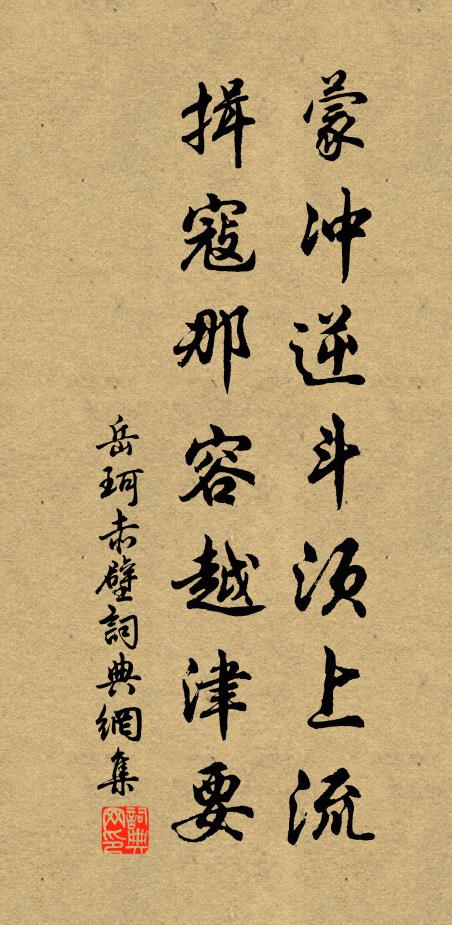 蒙冲逆斗须上流
揖寇那容越津要
岳珂赤壁詞典網集
詞典网印